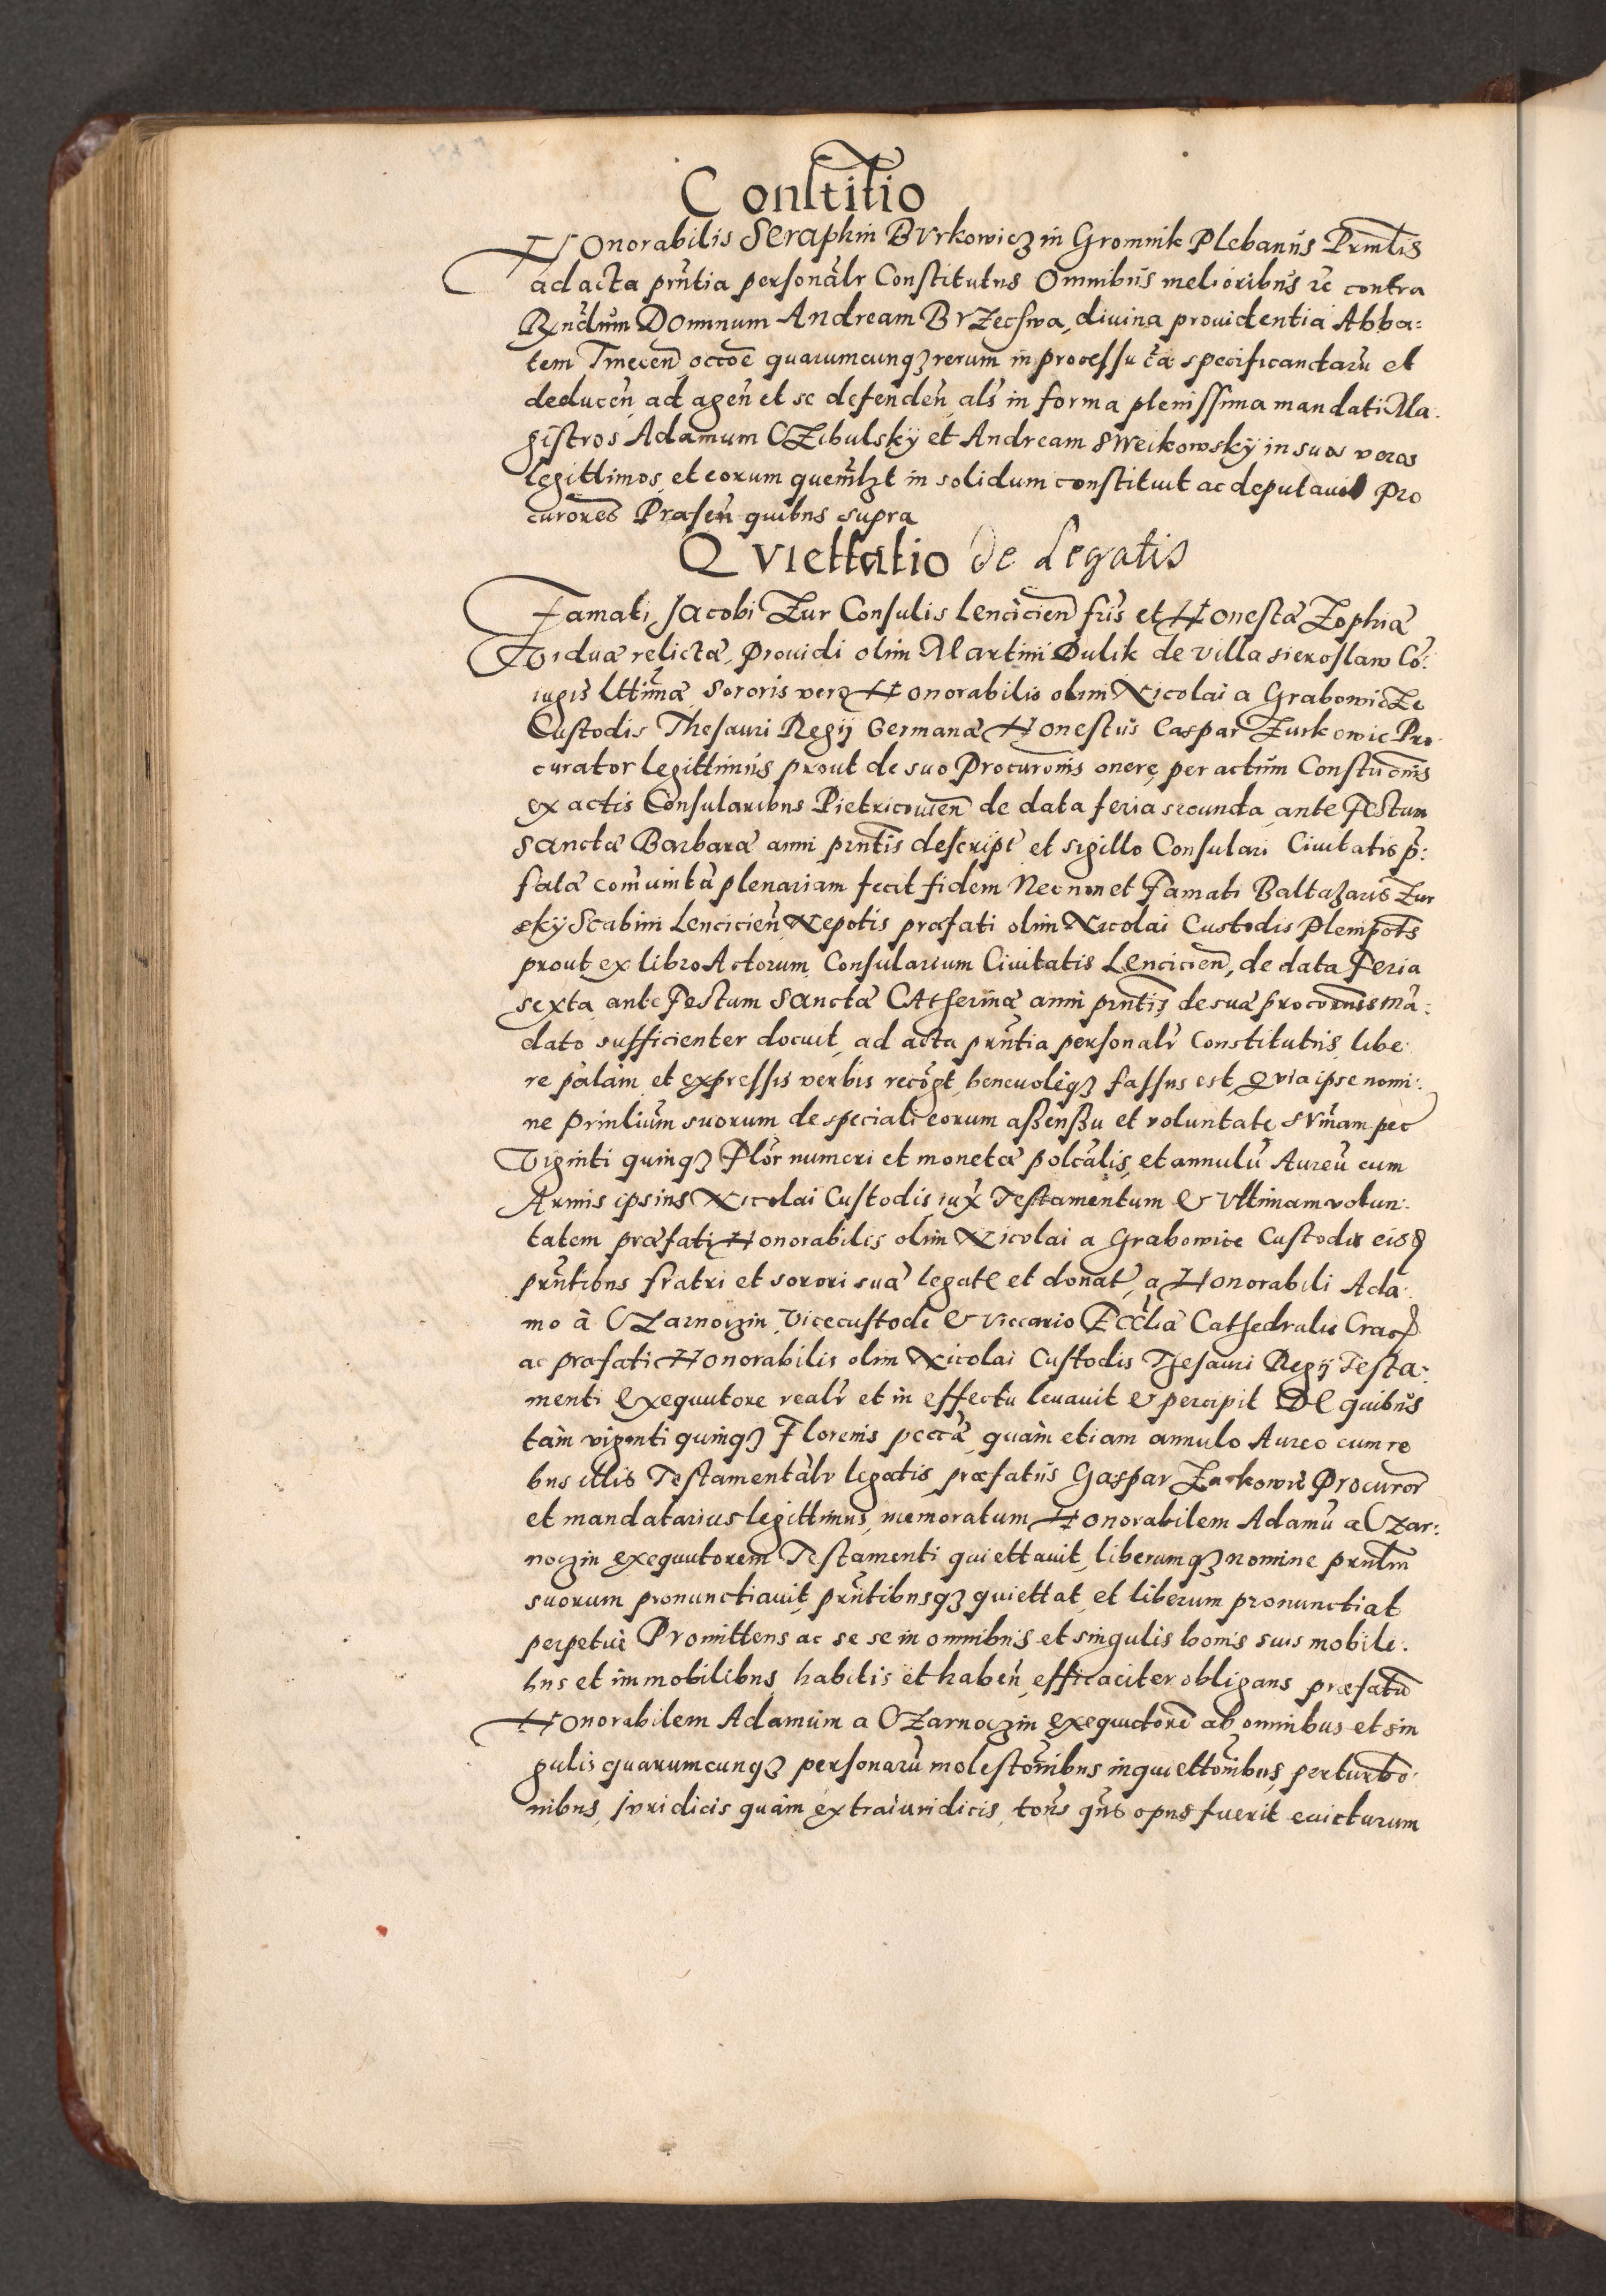 Constitio
Honorabilis Seraphin Burkowicz in Gromnik Plebanus Prmlis
ad acta prntia personalr Constitutus Omnibus melioribus rc contra
Rndum Dominum Andream Brzechwa, divina providentia Abba:
tem Tinecen occoe quarumcunqz rerum in processu ca specificandaru et
deducen, ad agen et se defenden, als in forma plenissima mandati Ma.
gistros Adamum Czibulsky et Andream Sweikowsky in suos veros
legittimos, et eorum quemlzt in solidum constituit ac deputavit Pro
curores Præsen quibus supra
Quiettatio de Legatis
Famati Jacobi Zur Consulis Lencicien fris et Honestæ Zophiæ
Viduæ relictæ, Providi olim Martini Dulik de villa Sieroslaw Co:
iugis Lttimæ Sororis vero Honorabilis olim Nicolai a Grabowicze
Custodis Thesauri Regij Germanæ Honestus Caspar Zurkowic Pro
curator legittimus prout de suo Procuronis onere, per actum Constuonis
ex actis Consularibus Pietricovien de data feria secunda, ante Festum
Sanctæ Barbaræ anni prntis descript et sigillo Consulari Civitatis p:
fatæ comunita plenariam fecit fidem Necnon et Famati Baltazaris Zur
eky Scabini Lencicien Nepotis præfati olim Nicolai Custodis Plenipots
prout ex libro Actorum Consularium Civitatis Lencicien, de data Feria
sexta ante Festum Sanctæ Catherinæ anni prntis, de suæ procuronis ma:
dato sufficienter docuit, ad acta prntia personalr Constitutus, libe
re palam et expressis verbis recogt, benevoleqz fassus est, Quia ipse nomi:
ne Prinlium suorum de speciali eorum assenssu et voluntate, Summam pec
Viginti quinqz Flor numeri et monetæ polcalis, et annulu Aureu cum
Armis ipsius Nicolai Custodis, iux Testamentum & Ultimam volun:
tatem præfati Honorabilis olim Nicolai a Grabowice Custodis eisd
prntibus fratri et sorori suæ legat et donat, a Honorabili Ada:
mo à Czarnoczin, Vicecustode & Viccario Ecclia Cathedralis Crac
ac præfati Honorabilis olim Nicolai Custodis Thesauri Regij Testa:
menti Exequutore realr et in effectu levavit & percipit De quibus
tàm viginti quinqz Florenis peccæ, quàm etiam annulo Aureo cum re
bus illis Testamentalr legatis, præfatus Gaspar Zurkowic Procuror
et mandatarius legittimus, memoratum Honorabilem Adamu a Czar:
noczin exequutorem Testamenti quiettavit, liberumqz nomine prnlm
suorum pronunctiavit, prntibusqz quiettat, et liberum pronunctiat
perpetuò Promittens ac se se in omnibus et singulis bonis suis mobili.
bus et immobilibus, habitis et haben, efficaciter obligans præfatu
Honorabilem Adamum a Czarnoczin exequutore ab omnibus et sin
gulis quarumcunqz personaru molestonibus inquiettonibus, perturbo:
nibus, Juridicis quàm extraiuridicis, tous qus opus fuerit evicturum